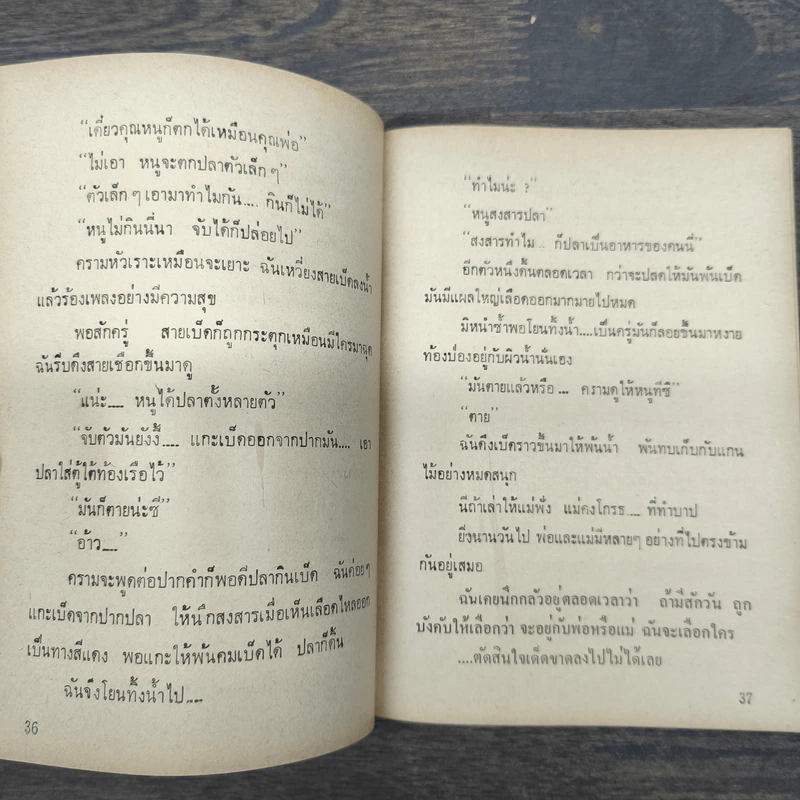 “เดี๋ยวคุณหนูก็ตกได้เหมือนคุณพ่อ”
“ไม่เอา หนูจะตกปลาตัวเล็ก ๆ”
“ตัวเล็ก ๆ เอามาทำไมกัน.... กินก็ไม่ได้”
“หนูไม่กินนี่นา จับได้ก็ปล่อยไป”
ครามหัวเราะเหมือนจะเยาะ ฉันเหวี่ยงสายเบ็ดลงน้ำ
แล้วร้องเพลงอย่างมีความสุข
พอสักครู่ สายเบ็ดก็ถูกกระตุกเหมือนมีใครมาฉุด
ฉันรีบดึงสายเชือกขึ้นมาดู
“แน่ะ.... หนูได้ปลาตั้งหลายตัว”
“จับตัวมันยังงี้.... แกะเบ็ดออกจากปากมัน.... เอา
ปลาใส่ตู้ใต้ท้องเรือไว้”
“มันก็ตายน่ะซี”
“อ้าว....”
ครามจะพูดต่อปากคำก็พอดีปลากินเบ็ด ฉันค่อยๆ
แกะเบ็ดจากปากปลา ให้นึกสงสารเมื่อเห็นเลือดไหลออก
เป็นทางสีแดง พอแกะให้พ้นคมเบ็ดได้ ปลาก็ดิ้น
ฉันจึงโยนทิ้งน้ำไป....
36
“ทำไมน่ะ ?”
“หนูสงสารปลา”
“สงสารทำไม.. ก็ปลาเป็นอาหารของคนนี่”
อีกตัวหนึ่งดิ้นตลอดเวลา กว่าจะปลดให้มันพ้นเบ็ด
มันมีแผลใหญ่เลือดออกมากมายไปหมด
มิหนำซ้ำพอโยนทิ้งน้ำ....เป็นครู่มันก็ลอยขึ้นมาหงาย
ท้องป่องอยู่กับผิวน้ำนั่นเอง
“มันตายแล้วหรือ ... ครามดูให้หนูทีซี”
“ตาย”
ฉันดึงเบ็ดราวขึ้นมาให้พ้นน้ำ พันทบเก็บกับแกน
ไม้อย่างหมดสนุก
นี่ถ้าเล่าให้แม่ฟัง แม่คงโกรธ.... ที่ทำบาป
ยิ่งนานวันไป พ่อและแม่มีหลายๆ อย่างที่ไปตรงข้าม
กันอยู่เสมอ
ฉันเคยนึกกลัวอยู่ตลอดเวลาว่า ถ้ามีสักวัน ถูก
บังคับให้เลือกว่า จะอยู่กับพ่อหรือแม่ ฉันจะเลือกใคร
....ตัดสินใจเด็ดขาดลงไปไม่ได้เลย
37